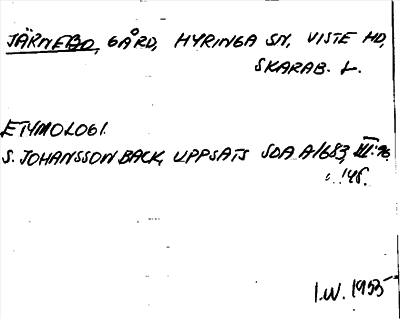 JÄRNEBO, GÅRD, HYRINGA SN, VISTE HD,
SKARAB. L.
ETYMOLOGI.
S. JOHANSSON BACK, UPPSATS SOA A1683, III: 96.
" 146.
I.W. 1955